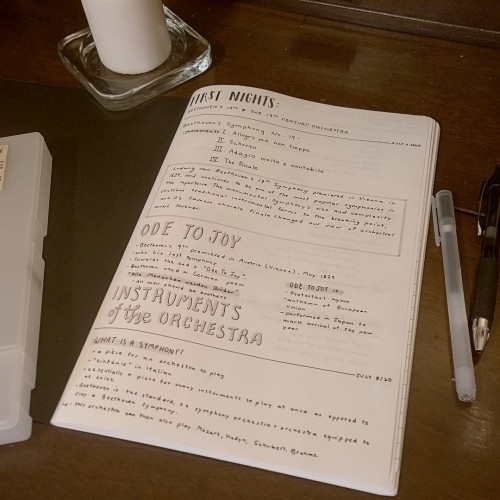 FIRST NIGHTS:
BEETHOVEN'S 9TH & THE 19TH CENTURY ORCHESTRA
JULY 7 2020
Beethoven's Symphony No. 9 -
Movements I. Allegro ma non troppo
II. Scherzo
III. Adagio molto e cantabile
IV. The Finale
Ludwig van Beethoven's 9th Symphony premiered in Vienna in
1824, and continues to be one of the most popular symphonies in
the repertoire. The monumental symphony's size and complexity
stretches traditional instrumental forms to the breaking point,
and it's famous choral finale changed our view of orchestral
music forever.
ODE TO JOY
- Beethoven's 9th premiered in Austria (Vienna), May 1824
- was his last symphony
- towards the end is "Ode To Joy"
- Beethoven used a German poem
- "Alle Menschen werden Brüder"
- All men should be brothers
ODE TO JOY is..
- Protestant hymn
- anthem of European
Union
- performed in Japan to
mark arrival of the new
year
INSTRUMENTS
of the ORCHESTRA
JULY 8/20
WHAT IS A SYMPHONY?
- a piece for an orchestra to play
- "sinfonia" in Italian
- essentially a piece for many instruments to play at once as opposed to
as solos.
- Beethoven is the standard, so symphony orchestra = orchestra equipped to
play a Beethoven Symphony.
this orchestra can then also play Mozart, Haydn, Schubert, Brahms